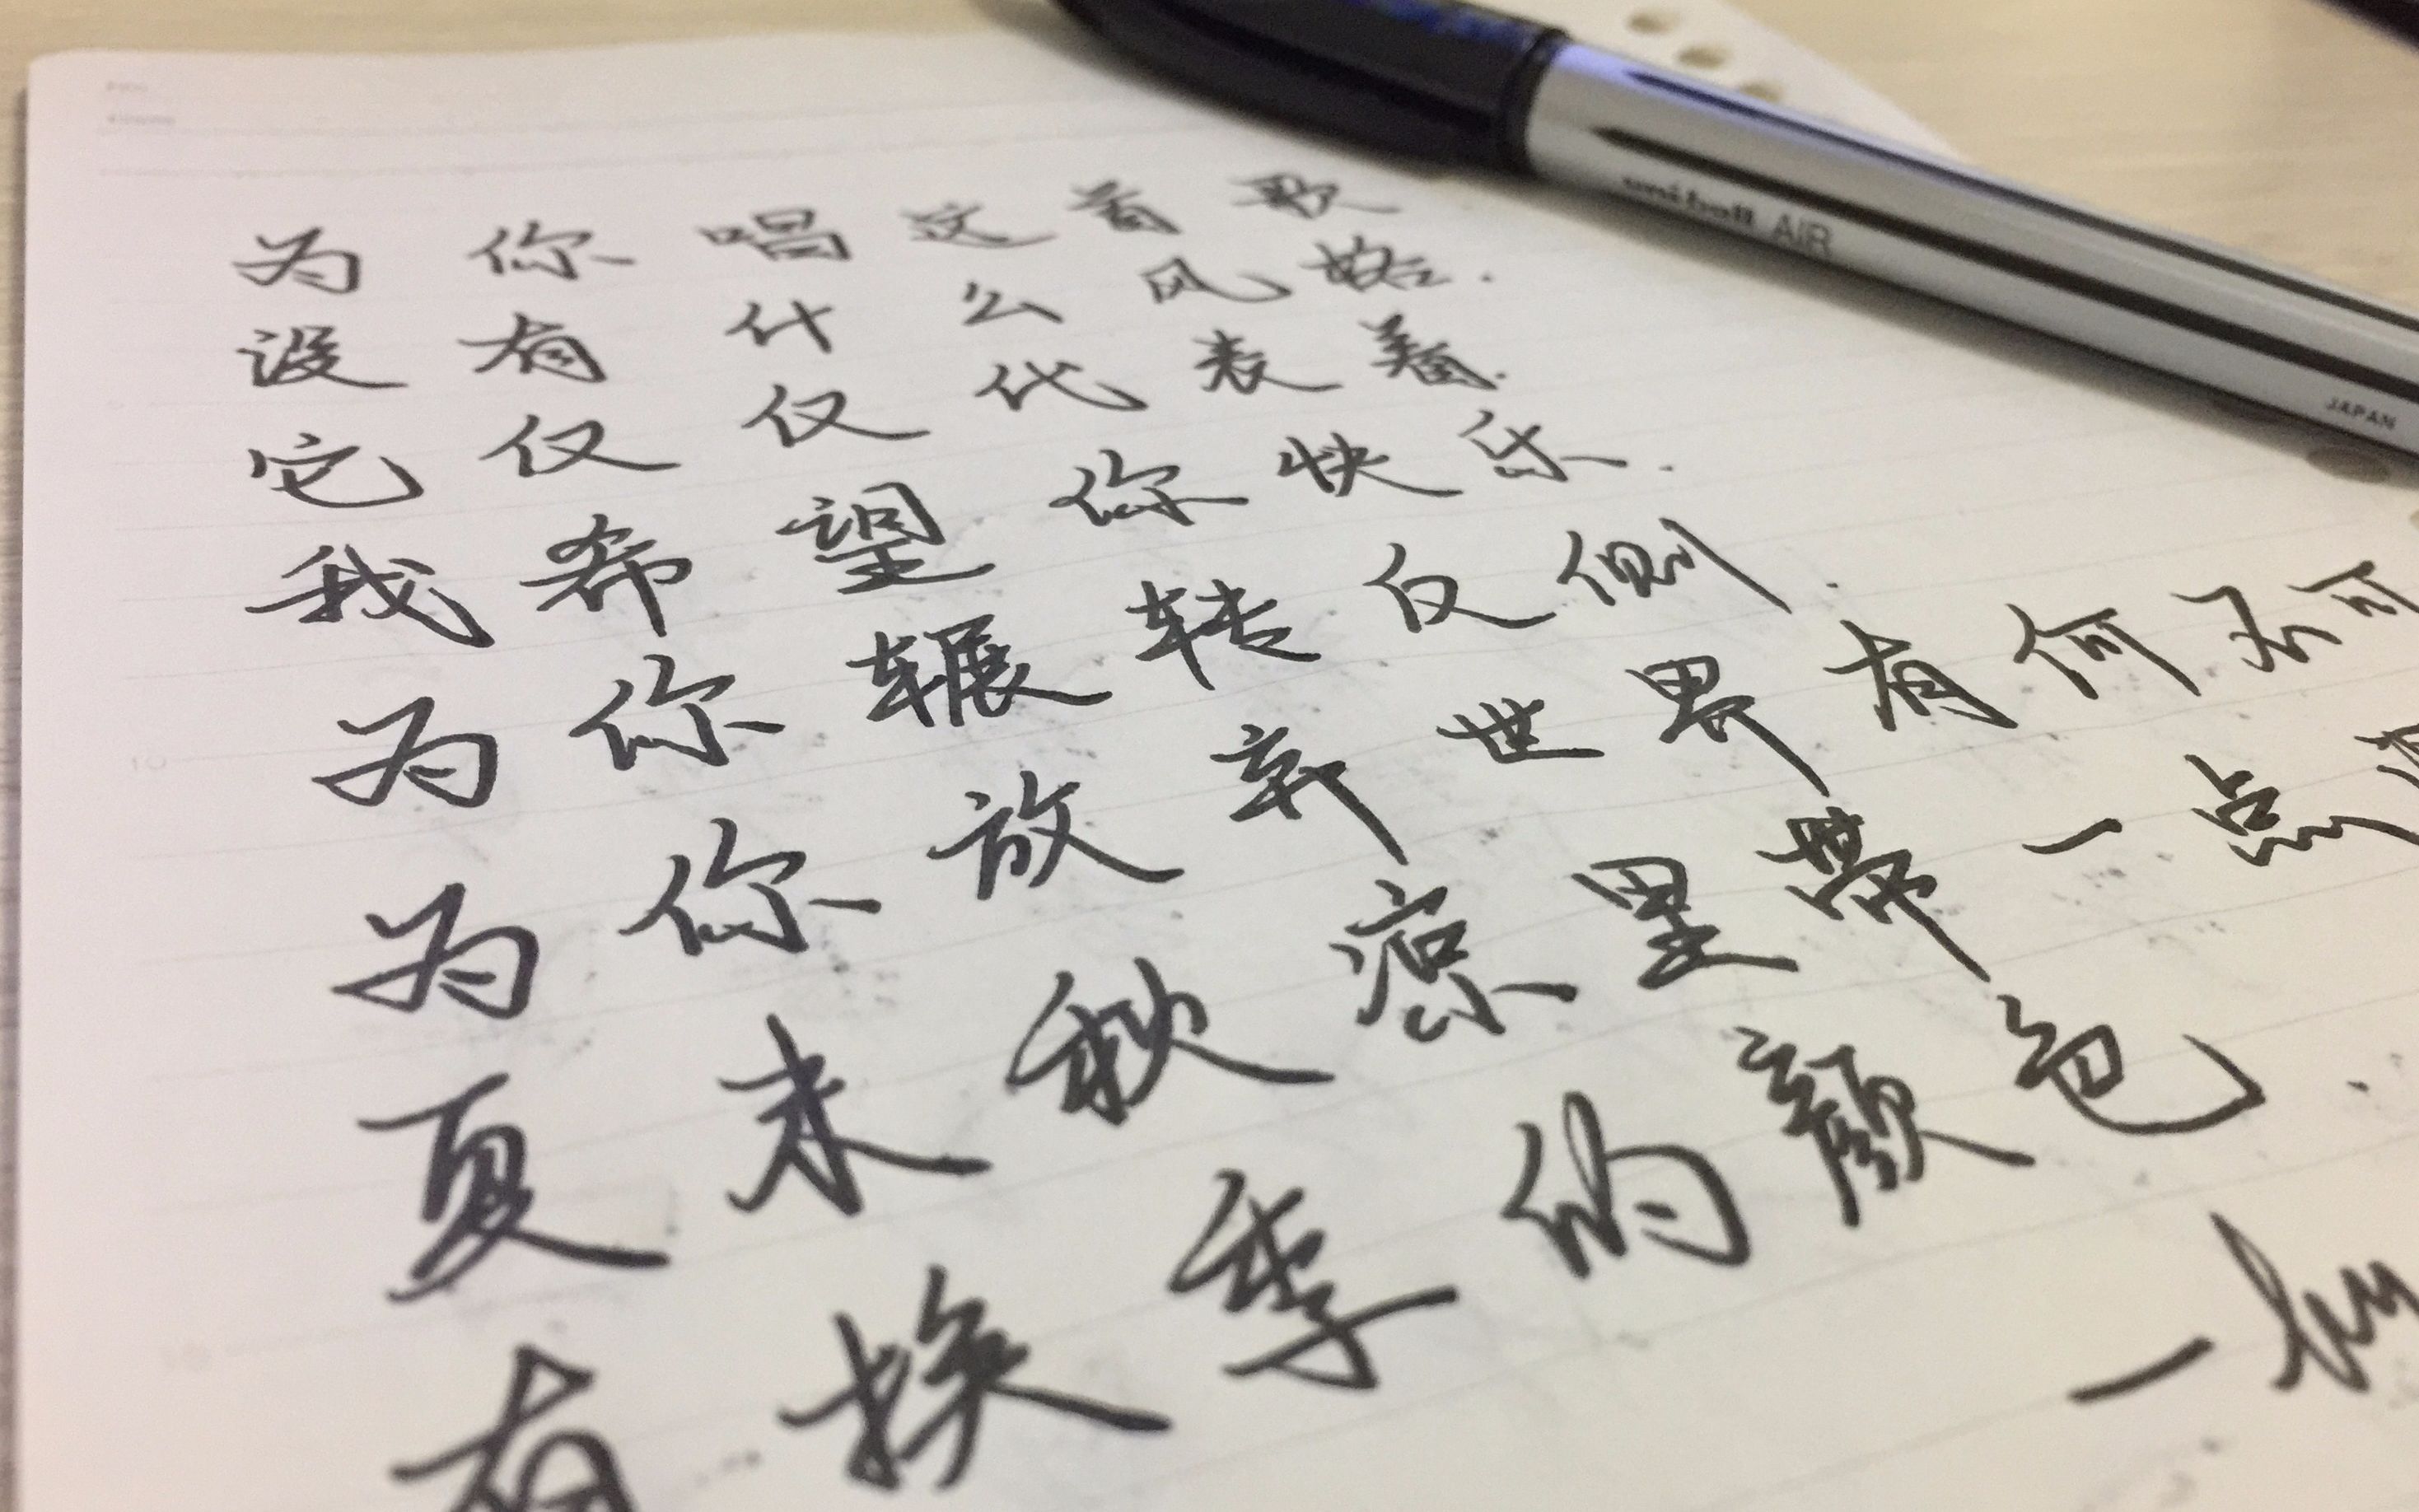 为你唱这首歌
没有什么风格.
它仅仅代表着.
我希望你快乐.
为你辗转反侧.
为你放弃世界有何不可
夏末秋凉里带一点
有换季的颜色.
一
uni-ball AIR
JAPAN
10